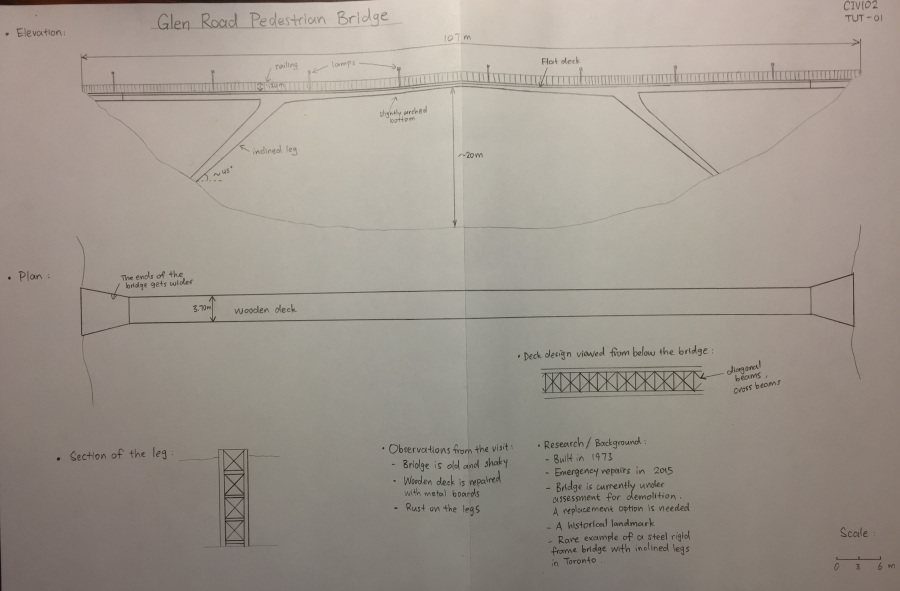 Glen Road Pedestrian Bridge
CIV102
TUT-01
• Elevation:
107 m
railing
lamps
Flat deck
slightly arched
bottom
inclined leg
~20m
• Plan:
The ends of the
bridge gets wider
3.70m
Wooden deck
• Deck design viewed from below the bridge:
diagonal
beams,
cross beams
• Section of the leg:
• Observations from the visit:
- Bridge is old and shaky
- Wooden deck is repaired
with metal boards
- Rust on the legs
• Research/Background:
- Built in 1973
- Emergency repairs in 2015
- Bridge is currently under
assessment for demolition.
A replacement option is needed
- A historical landmark
- Rare example of a steel rigid
frame bridge with inclined legs
in Toronto.
Scale:
0 3 6 m